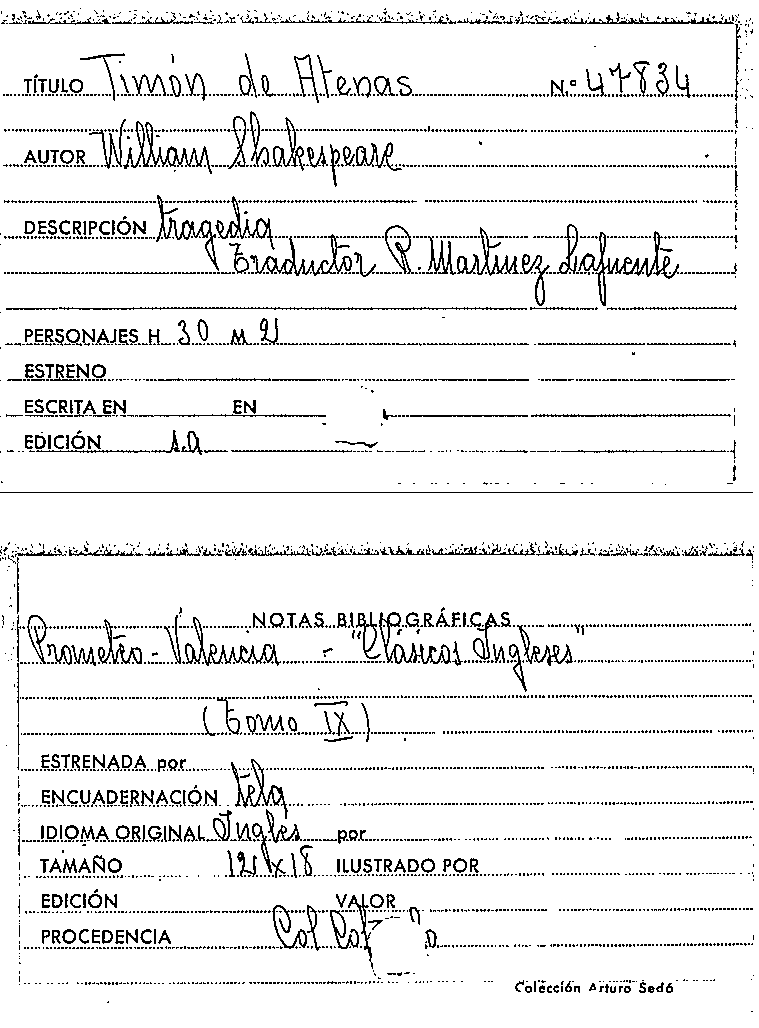 TÍTULO Timón de Atenas N.º 47834
AUTOR William Shakespeare
DESCRIPCIÓN tragedia
Traductor R. Martinez Lafuente
PERSONAJES H 30 M 2
ESTRENO
ESCRITA EN EN
EDICIÓN s.a
NOTAS BIBLIOGRÁFICAS
Prometeo - Valencia - "Clásicos Ingleses"
(Tomo IX)
ESTRENADA por
ENCUADERNACIÓN tela
IDIOMA ORIGINAL Ingles por
TAMAÑO 12 x 18 ILUSTRADO POR
EDICIÓN VALOR
PROCEDENCIA Col
Colección Arturo Sedó